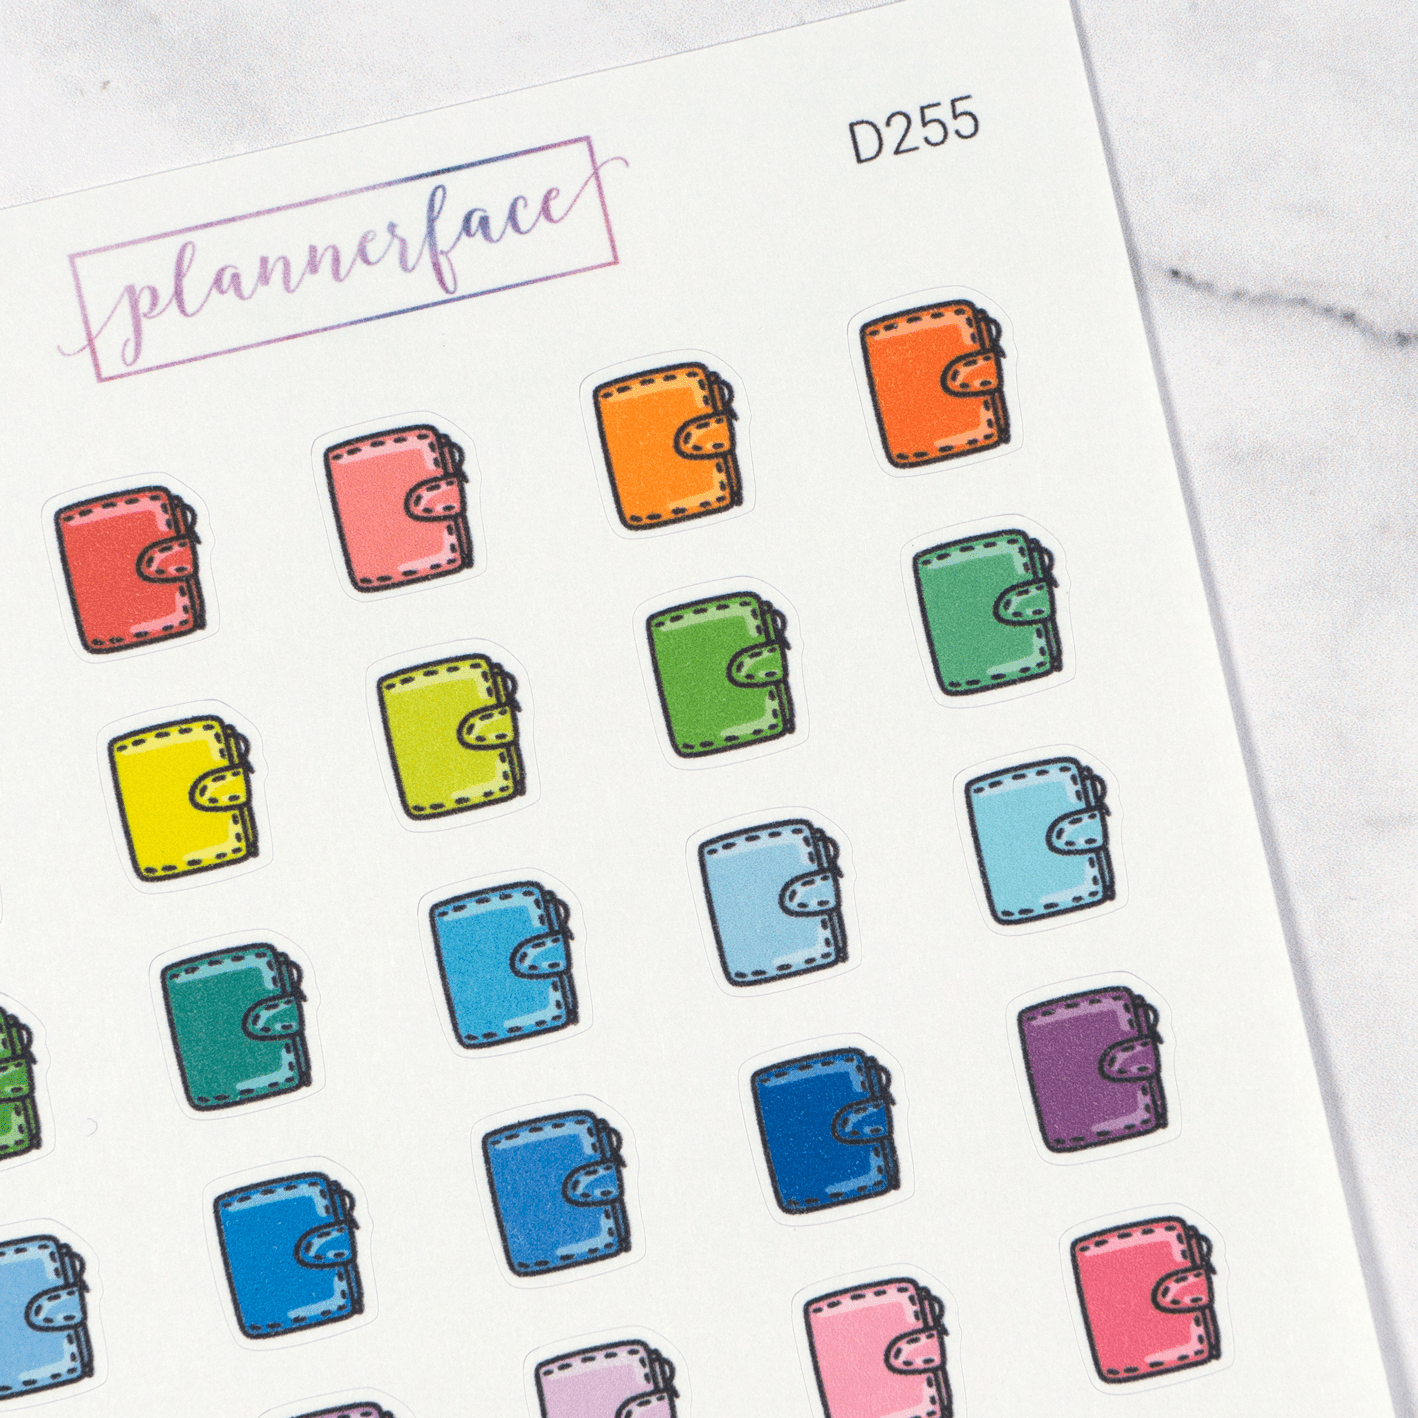 plannerface
D255